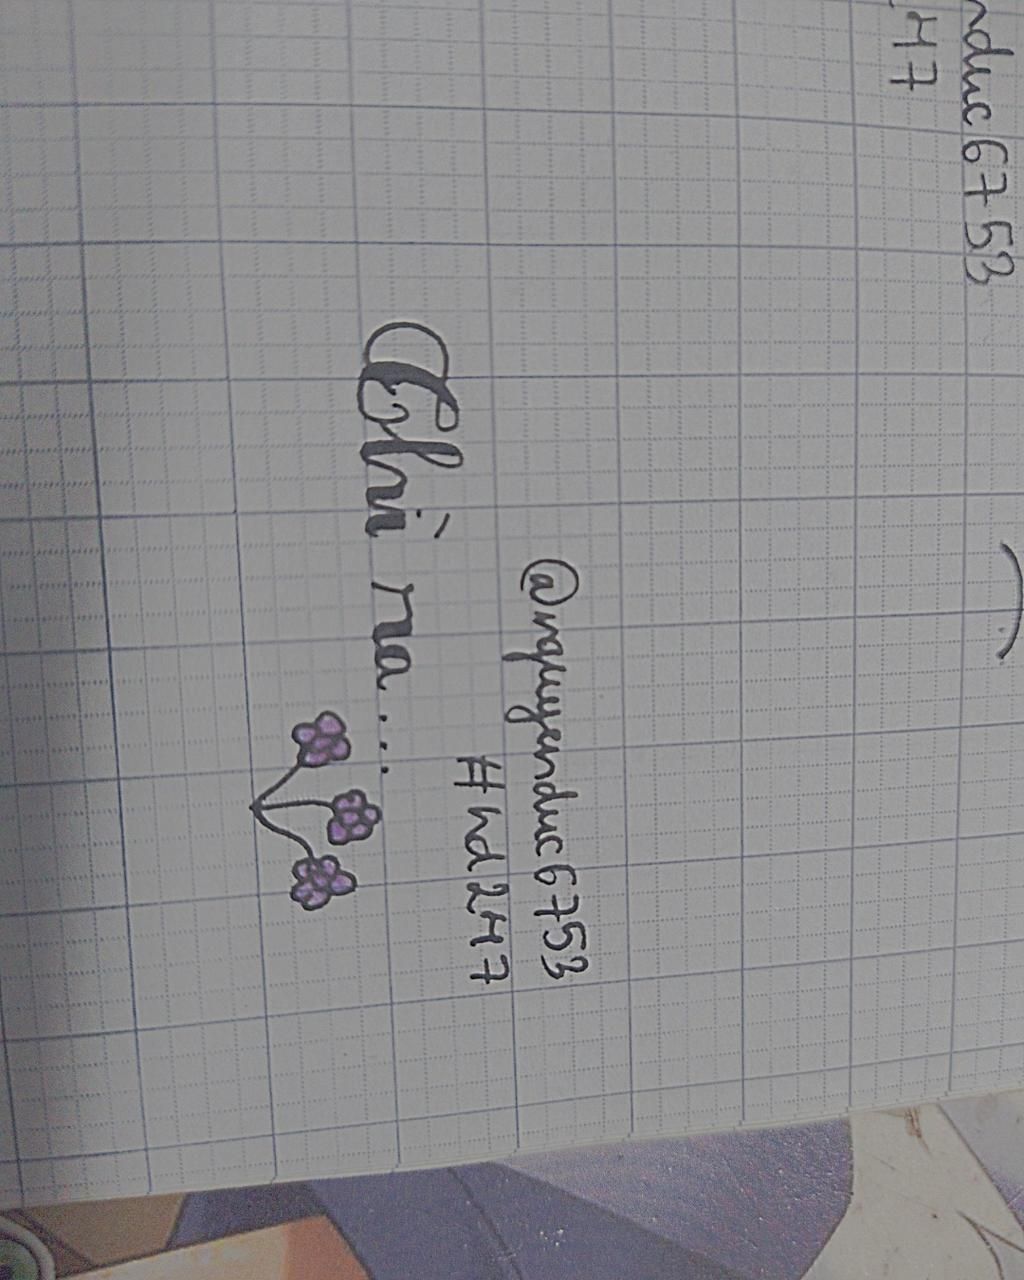 nduc6753
47
@nguyenduc6753
#hd247
Thì ra...